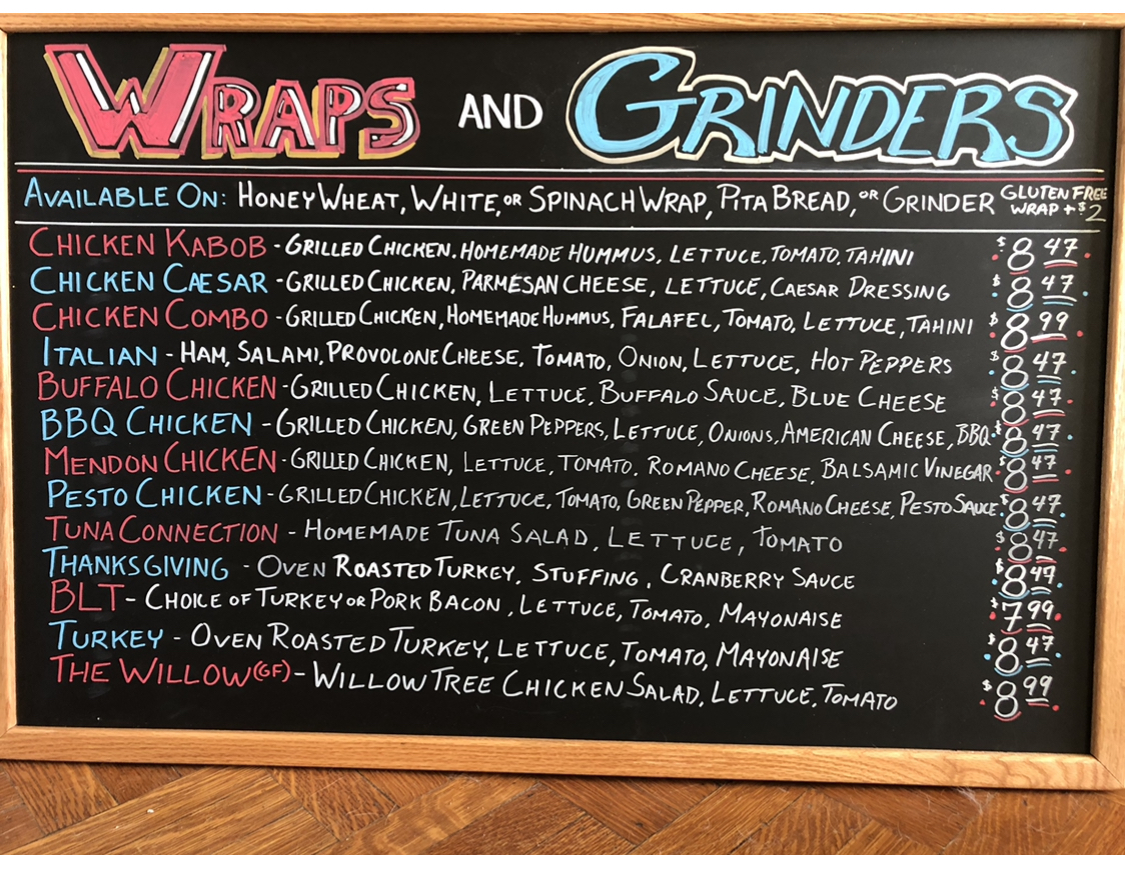 WRAPS AND GRINDERS
AVAILABLE ON: HONEY WHEAT, WHITE, OR SPINACH WRAP, PITA BREAD, OR GRINDER GLUTEN FREE WRAP + $2
CHICKEN KABOB - GRILLED CHICKEN. HOMEMADE HUMMUS, LETTUCE, TOMATO, TAHINI $8.47
CHICKEN CAESAR - GRILLED CHICKEN, PARMESAN CHEESE, LETTUCE, CAESAR DRESSING $8.47
CHICKEN COMBO - GRILLED CHICKEN, HOMEMADE HUMMUS, FALAFEL, TOMATO, LETTUCE, TAHINI $8.99
ITALIAN - HAM, SALAMI, PROVOLONE CHEESE, TOMATO, ONION, LETTUCE, HOT PEPPERS $8.47
BUFFALO CHICKEN - GRILLED CHICKEN, LETTUCE, BUFFALO SAUCE, BLUE CHEESE $8.47
BBQ CHICKEN - GRILLED CHICKEN, GREEN PEPPERS, LETTUCE, ONIONS, AMERICAN CHEESE, BBQ $8.47
MENDON CHICKEN - GRILLED CHICKEN, LETTUCE, TOMATO, ROMANO CHEESE, BALSAMIC VINEGAR $8.47
PESTO CHICKEN - GRILLED CHICKEN, LETTUCE, TOMATO, GREEN PEPPER, ROMANO CHEESE, PESTO SAUCE $8.47
TUNA CONNECTION - HOMEMADE TUNA SALAD, LETTUCE, TOMATO $8.47
THANKSGIVING - OVEN ROASTED TURKEY, STUFFING, CRANBERRY SAUCE $8.47
BLT - CHOICE OF TURKEY OR PORK BACON, LETTUCE, TOMATO, MAYONAISE $7.99
TURKEY - OVEN ROASTED TURKEY, LETTUCE, TOMATO, MAYONAISE $8.47
THE WILLOW (GF) - WILLOW TREE CHICKEN SALAD, LETTUCE, TOMATO $8.99